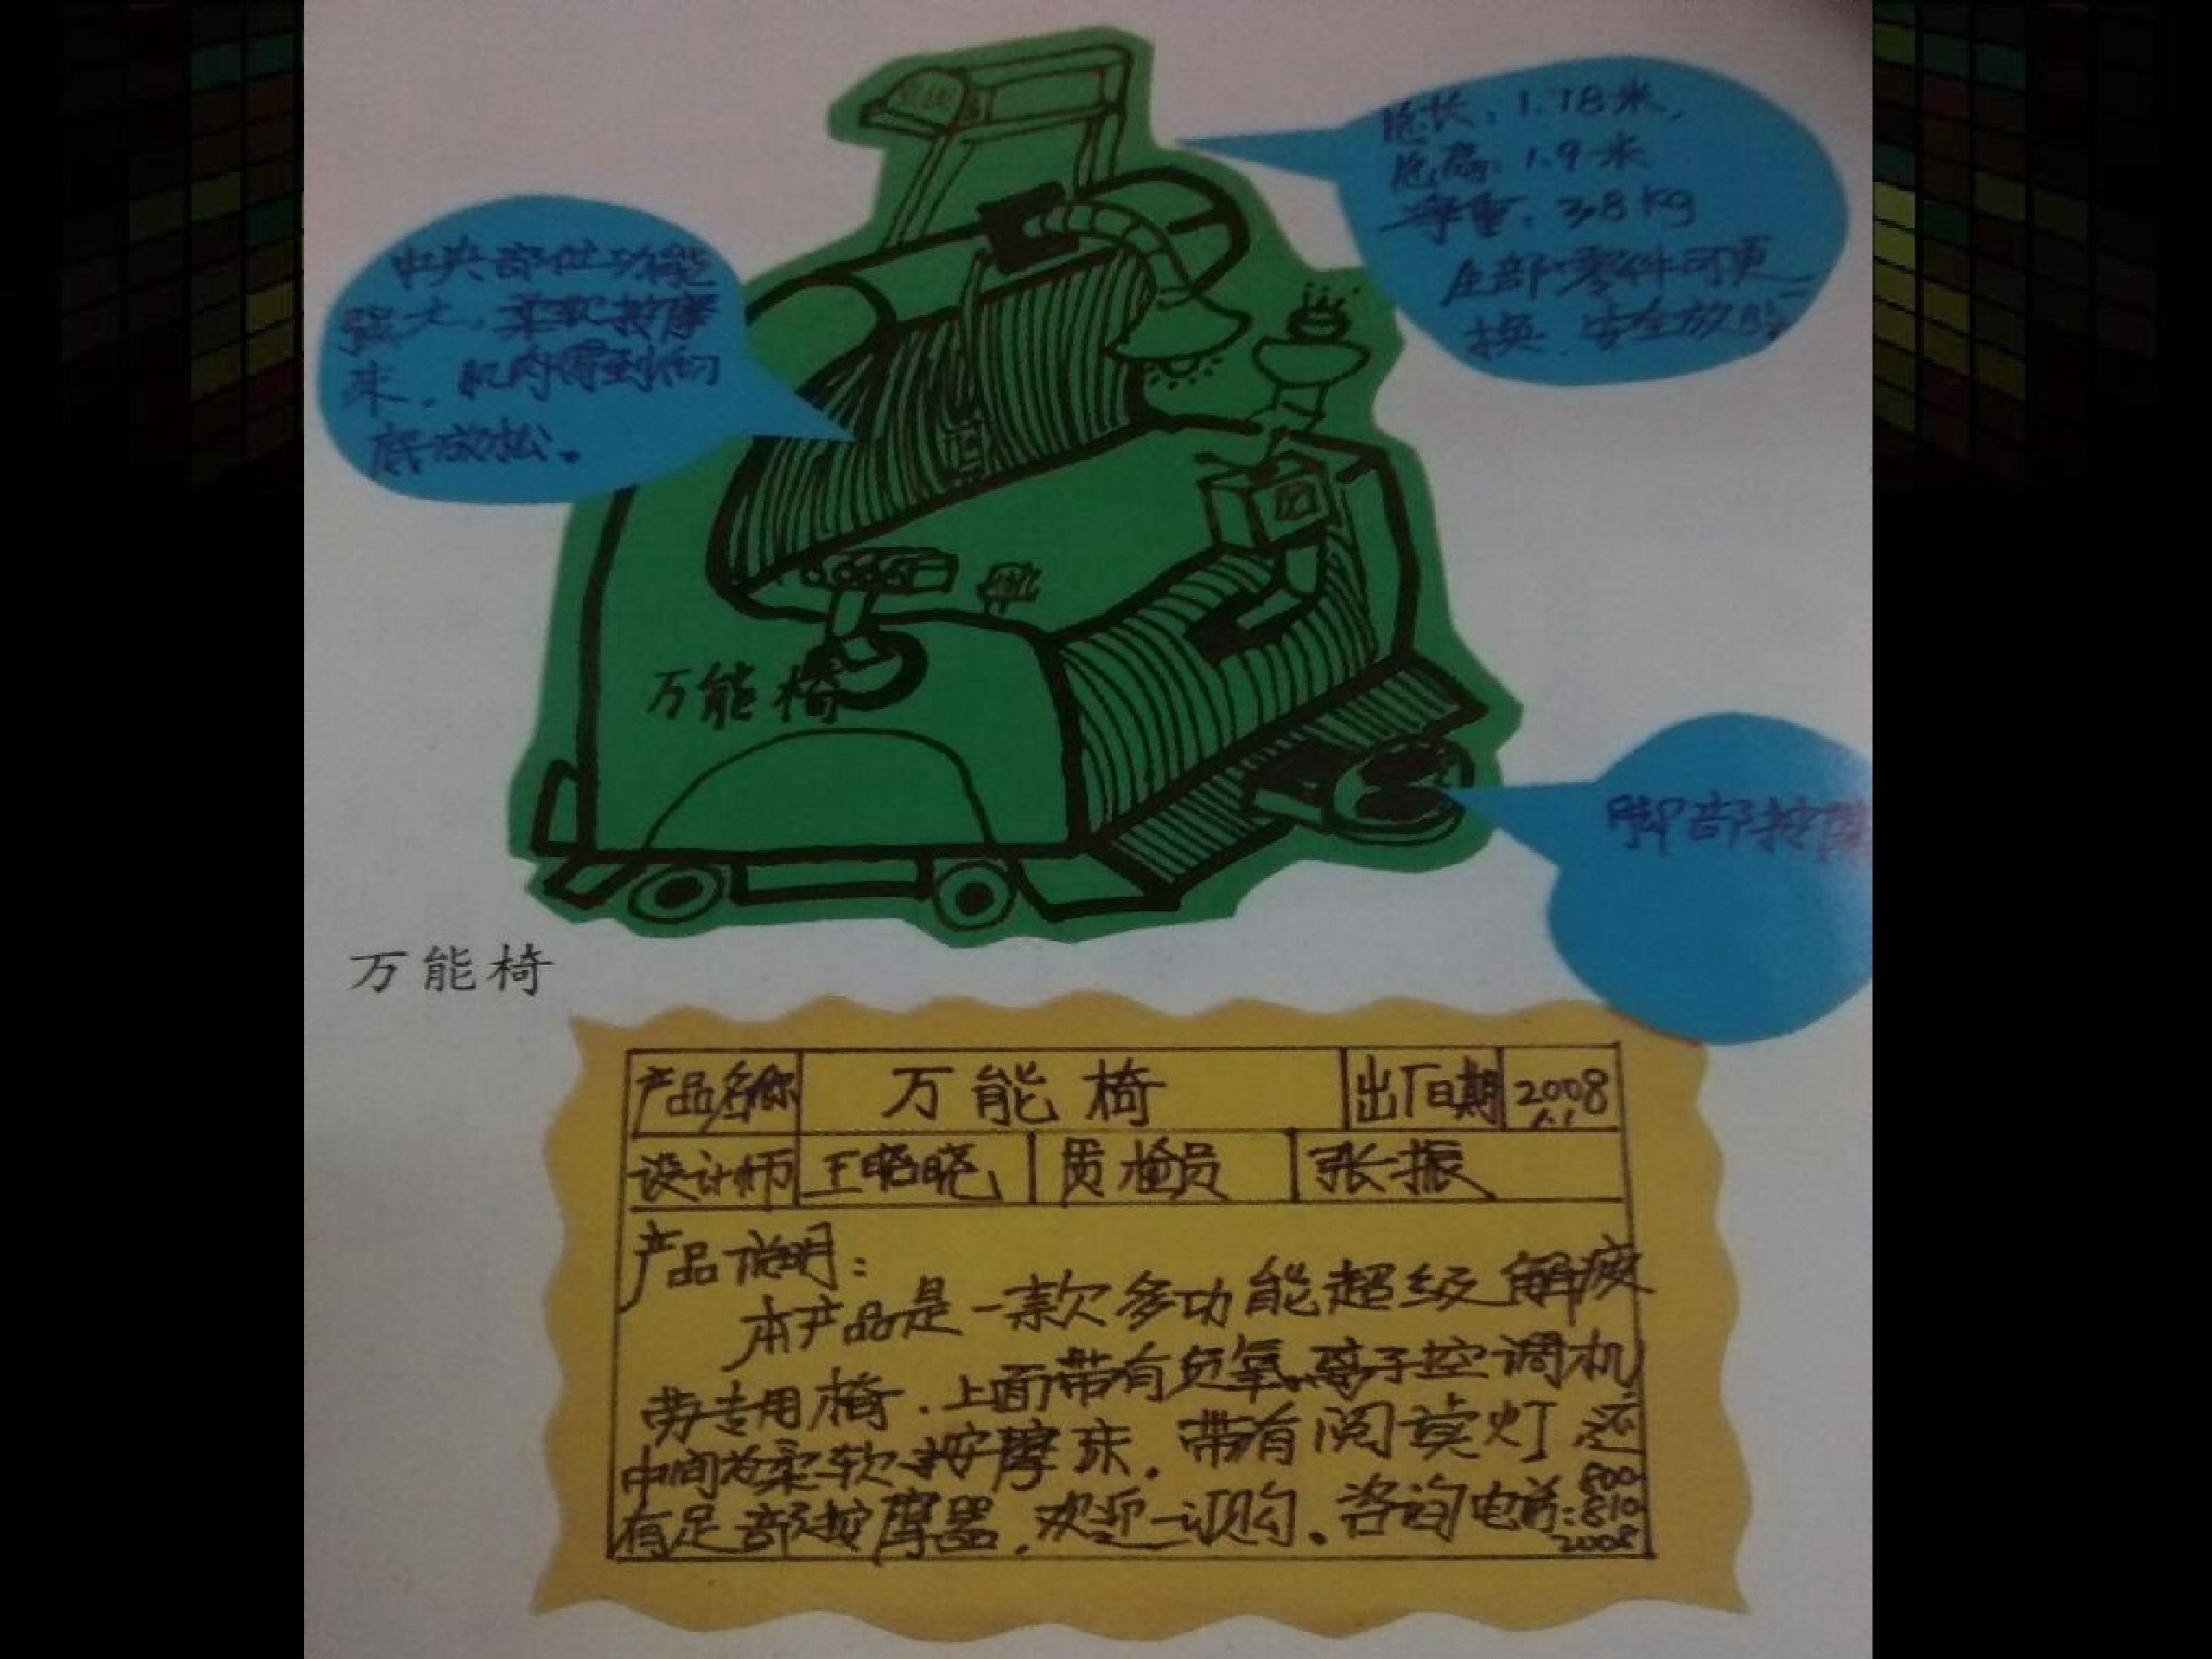 总长：1.78米，
总高：1.9米
净重：38kg
全部零件可更
换．安全放心
中央部位功能
强大，柔软按摩
床．肌肉得到彻
底放松。
万能椅
脚部按摩
万能椅
产品名称 万能椅 出厂日期 2008
1.1
设计师 王晓晓 质检员 张振
产品说明：
本产品是一款多功能超级解疲
劳专用椅．上面带有负氧离子空调机
中间为柔软按摩珠．带有阅读灯 还
有足部按摩器．欢迎订购．咨询电话：800-
810-
2008